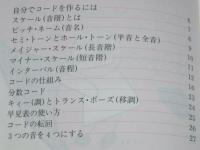 自分でコードを作るには
スケール(音階)とは 6
ピッチ・ネーム(音名) 7
セミ・トーンとホール・トーン(半音と全音) 8
メイジャー・スケール(長音階) 9
マイナー・スケール(短音階) 10
インターバル(音程)
コードの仕組み
分数コード
キィー(調)とトランス・ポーズ(移調)
早見表の使い方
コードの転回
3つの音を4つにする 27